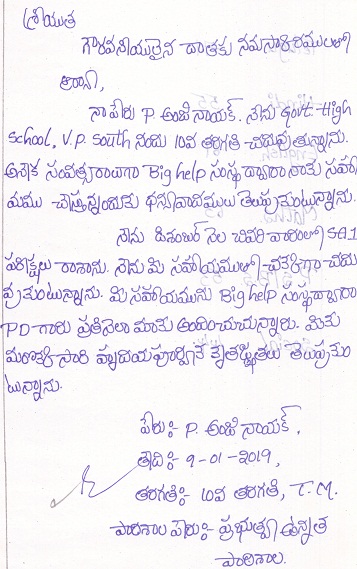 శ్రీయుత
గౌరవనీయులైన దాతకు నమస్కారములతో
అండి,
నా పేరు P. అంజి నాయక్. నేను Govt. High
School, V.P. South నందు 10వ తరగతి చదువుతున్నాను.
అనేక సంవత్సరాలుగా Big help సంస్థ ద్వారా నాకు సహా
యము చేస్తున్నందుకు ధన్యవాదములు తెలుపుకుంటున్నాను.
నేను డిసెంబర్ నెల చివరి వారంలో SA1
పరీక్షలు రాశాను. నేను మీ సహాయములతో చక్కగా చదు
వుకుంటున్నాను. మీ సహాయమును Big help సంస్థ ద్వారా
PD గారు ప్రతినెలా మాకు అందించుచున్నారు. మీకు
మరొక్క సారి హృదయపూర్వక కృతజ్ఞతలు తెలుపుకుం
టున్నాను.
పేరు:- P. అంజి నాయక్.
తేది:- 9-01-2019,
తరగతి:- 10వ తరగతి, T.M.
పాఠశాల పేరు:- ప్రభుత్వ ఉన్నత
పాఠశాల.